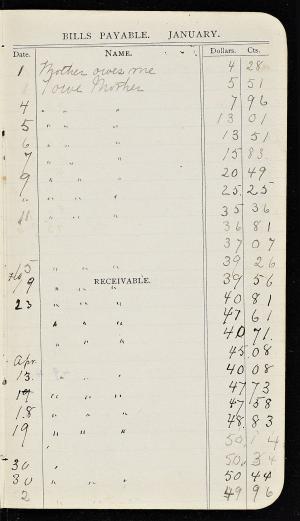 BILLS PAYABLE. JANUARY.
Date. NAME. Dollars. Cts.
1 Mother owes me 4 28
1 I owe Mother 5 51
4 " " " 7 96
5 " " " 13 01
6 " " " 13 51
7 " " " 15 83
9 " " " 20 49
" " " " 25 25
11 " " " 35 36
36 81
37 07
15 " " " 39 26
Feb 9 RECEIVABLE. 39 56
" " "
23 " " " 40 81
" " " 47 61
" " " 40 71
45 08
Apr.
13 " " 40 08
17 " " " 47 73
18 " " " 47 58
19 " " " 48 83
50 14
30 " 50 34
30 " " " 50 44
2 " " " 49 96